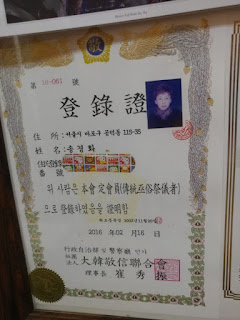 敬
제 16-061 호
登錄證
住 所 : 서울시 마포구 공덕동 115-35
姓 名 : 송경화
番號
위 사람은 本會 定會員(傳統巫俗祭儀者)
으로 登錄하였음을 證明함
2016 年 02 月 16 日
行政自治部 및 警察廳 인가
社團
法人 大韓敬信聯合會
理事長 崔秀